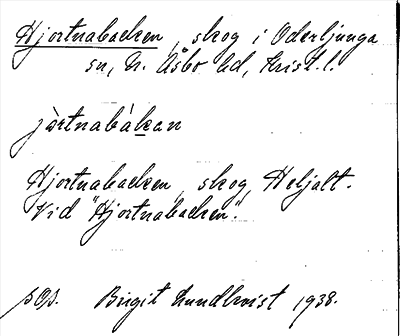 Hjortnabacken, skog i Oderljunga
sn, N. Åsbo hd, Krist. l.
jàrtnabákan
Hjortnabacken, skog, Heljalt.
Vid "Hjortnabacken".
Birgit Lundkvist 1938.